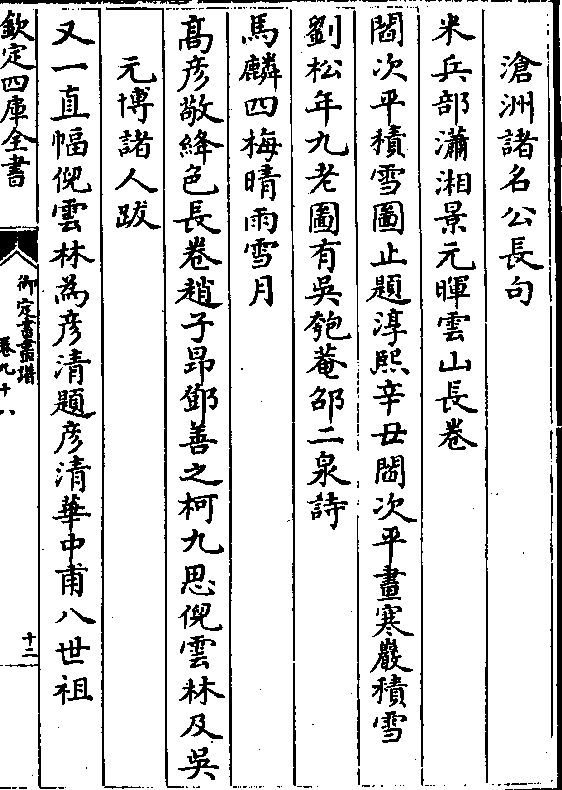 滄洲諸名公長句
米兵部瀟湘景元暉雲山長卷
閻次平積雪圖止題淳熙辛丑閻次平畫寒巖積雪
劉松年九老圖有吳匏菴邵二泉詩
馬麟四梅晴雨雪月
髙彦敬絳色長卷趙子昻鄧善之柯九思倪雲林及吳
元博諸人跋
又一直幅倪雲林為彦清題彦清華中甫八世祖
欽定四庫全書
御定書畫譜
卷九十八
十二